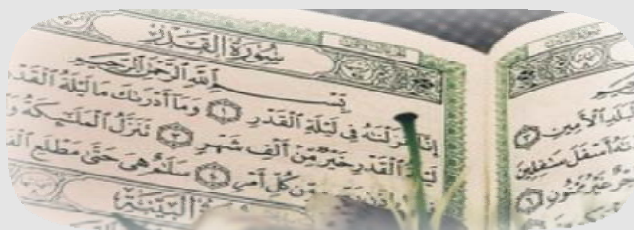 سُورَةُ الْقَدْرِ
بِسْمِ اللَّهِ الرَّحْمَٰنِ الرَّحِيمِ
إِنَّا أَنزَلْنَٰهُ فِى لَيْلَةِ الْقَدْرِ ١ وَمَا أَدْرَىٰكَ مَا لَيْلَةُ الْقَدْرِ
لَيْلَةُ الْقَدْرِ خَيْرٌ مِّنْ أَلْفِ شَهْرٍ ٣ تَنَزَّلُ الْمَلَٰٓئِكَةُ
مِّن كُلِّ أَمْرٍ ٤ سَلَٰمٌ هِىَ حَتَّىٰ مَطْلَعِ
الْبَيِّنَةِ
الْأَمِينِ ٣
أَسْفَلَ سَٰفِلِينَ
غَيْرُ مَمْنُونٍ ٦